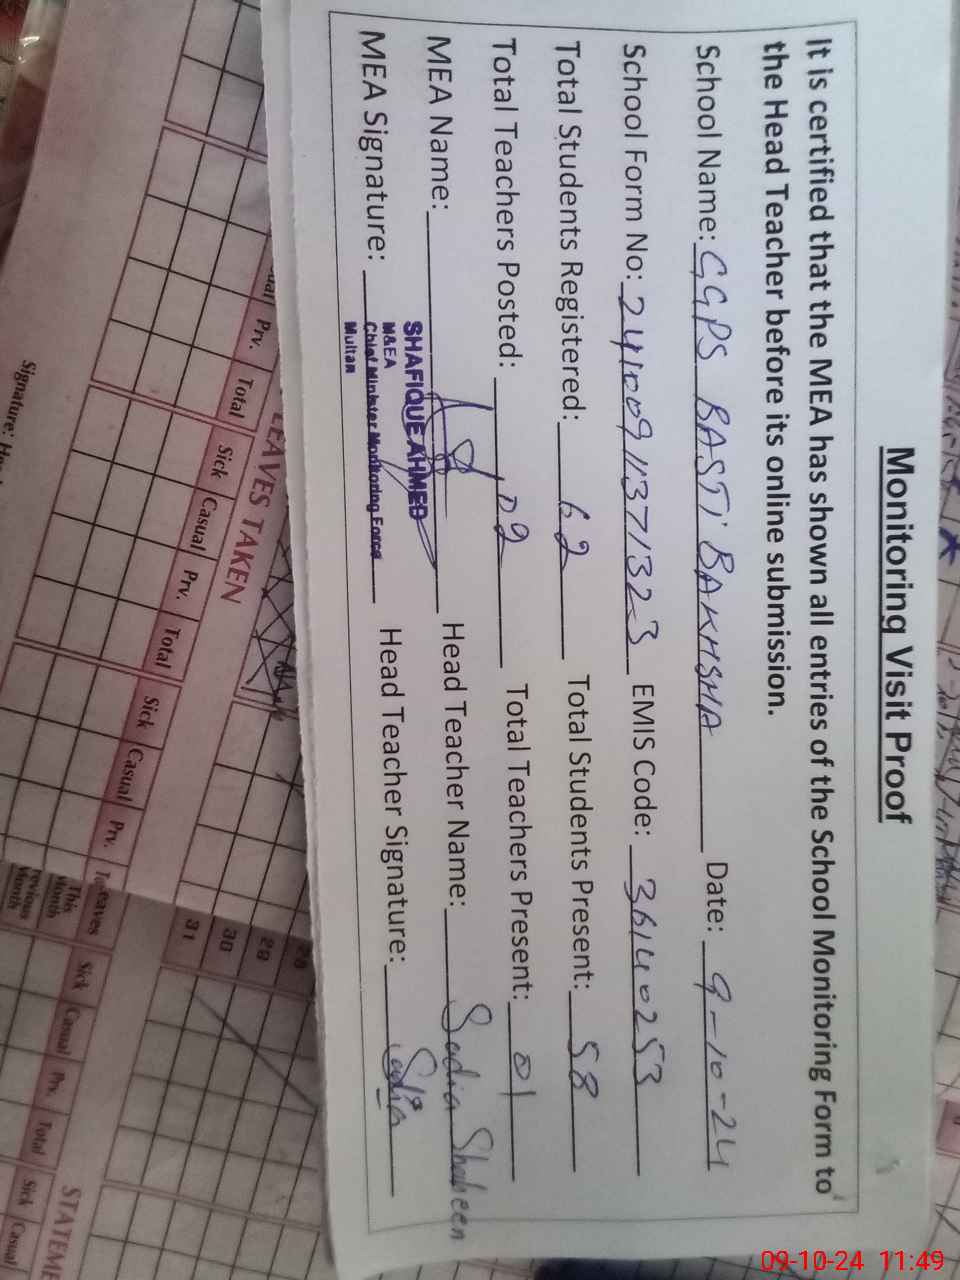 Monitoring Visit Proof
It is certified that the MEA has shown all entries of the School Monitoring Form to
the Head Teacher before its online submission.
School Name: GGPS BASTI BAKHSHA Date: 9-10-24
School Form No: 24100911371323 EMIS Code: 36140253
Total Students Registered: 62 Total Students Present: 58
Total Teachers Posted: 02 Total Teachers Present: 01
MEA Name: Head Teacher Name: Sadia Shaheen
SHAFIQUE AHMED
M&EA
Chief Minister Monitoring Force
Multan
MEA Signature: Head Teacher Signature: Sadia
LEAVES TAKEN
Prv. Total Sick Casual Prv. Total Sick Casual Prv.
Signature:
28
29
30
31
This Month
Sick Casual Prv. Total Sick Casual
09-10-24 11:49